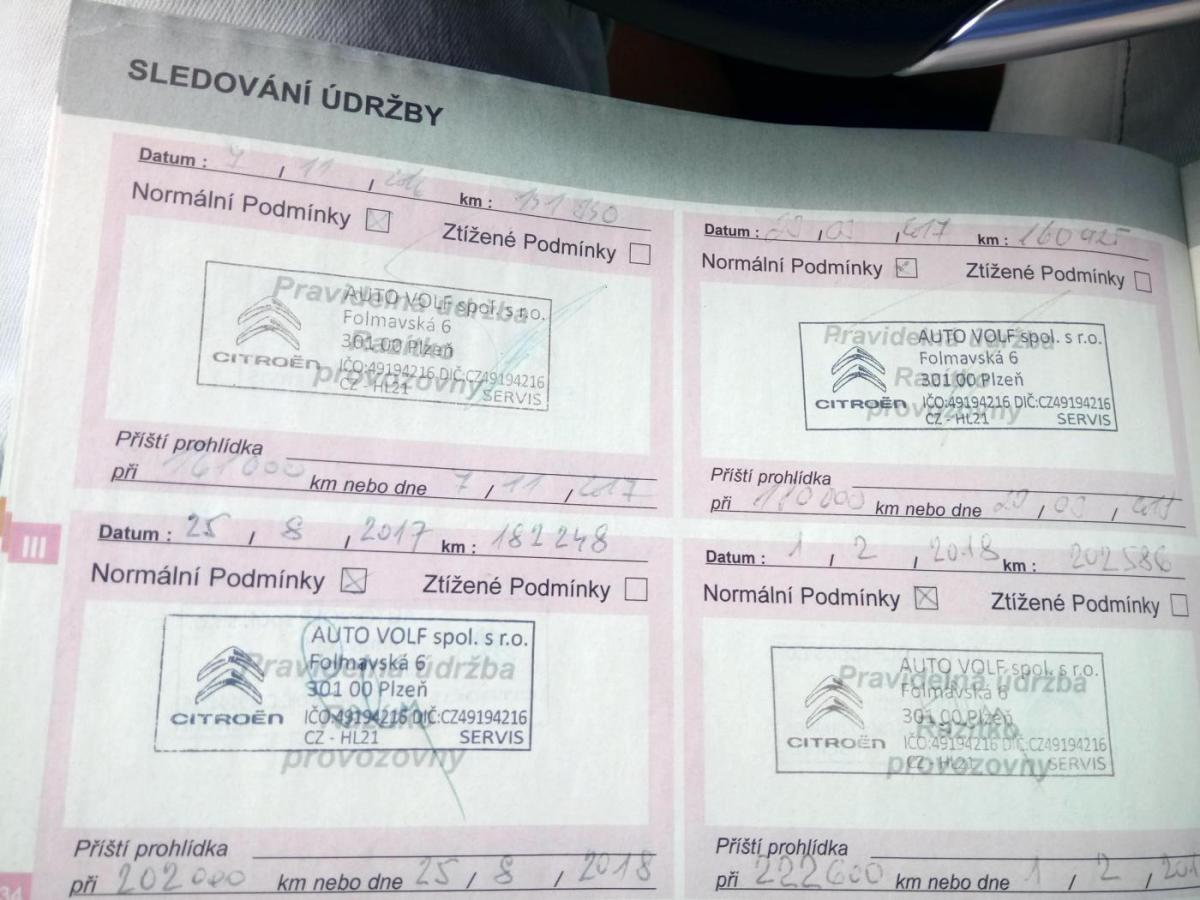 SLEDOVÁNÍ ÚDRŽBY
Datum : 7 / 11 / 2016 km : 151 250
Normální Podmínky Ztížené Podmínky
Pravidelná údržba
Razítko
provozovny
AUTO VOLF spol. s r.o.
Folmavská 6
301 00 Plzeň
CITROËN IČO:49194216 DIČ:CZ49194216
CZ - HL21 SERVIS
Příští prohlídka
při 161000 km nebo dne 7 / 11 / 2017
Datum : / 03 / 2017 km : 160925
Normální Podmínky Ztížené Podmínky
Pravidelná údržba
Razítko
provozovny
AUTO VOLF spol. s r.o.
Folmavská 6
301 00 Plzeň
CITROËN IČO:49194216 DIČ:CZ49194216
CZ - HL21 SERVIS
Příští prohlídka
při km nebo dne / 03 /
III
Datum : 25 / 8 / 2017 km : 182248
Normální Podmínky Ztížené Podmínky
Pravidelná údržba
provozovny
AUTO VOLF spol. s r.o.
Folmavská 6
301 00 Plzeň
CITROËN IČO:49194216 DIČ:CZ49194216
CZ - HL21 SERVIS
Příští prohlídka
při 202000 km nebo dne 25 / 8 / 2018
Datum : 1 / 2 / 2018 km : 202586
Normální Podmínky Ztížené Podmínky
Pravidelná údržba
Razítko
provozovny
AUTO VOLF spol. s r.o.
Folmavská 6
301 00 Plzeň
CITROËN IČO:49194216 DIČ:CZ49194216
CZ - HL21 SERVIS
Příští prohlídka
při 222600 km nebo dne 1 / 2 /
34